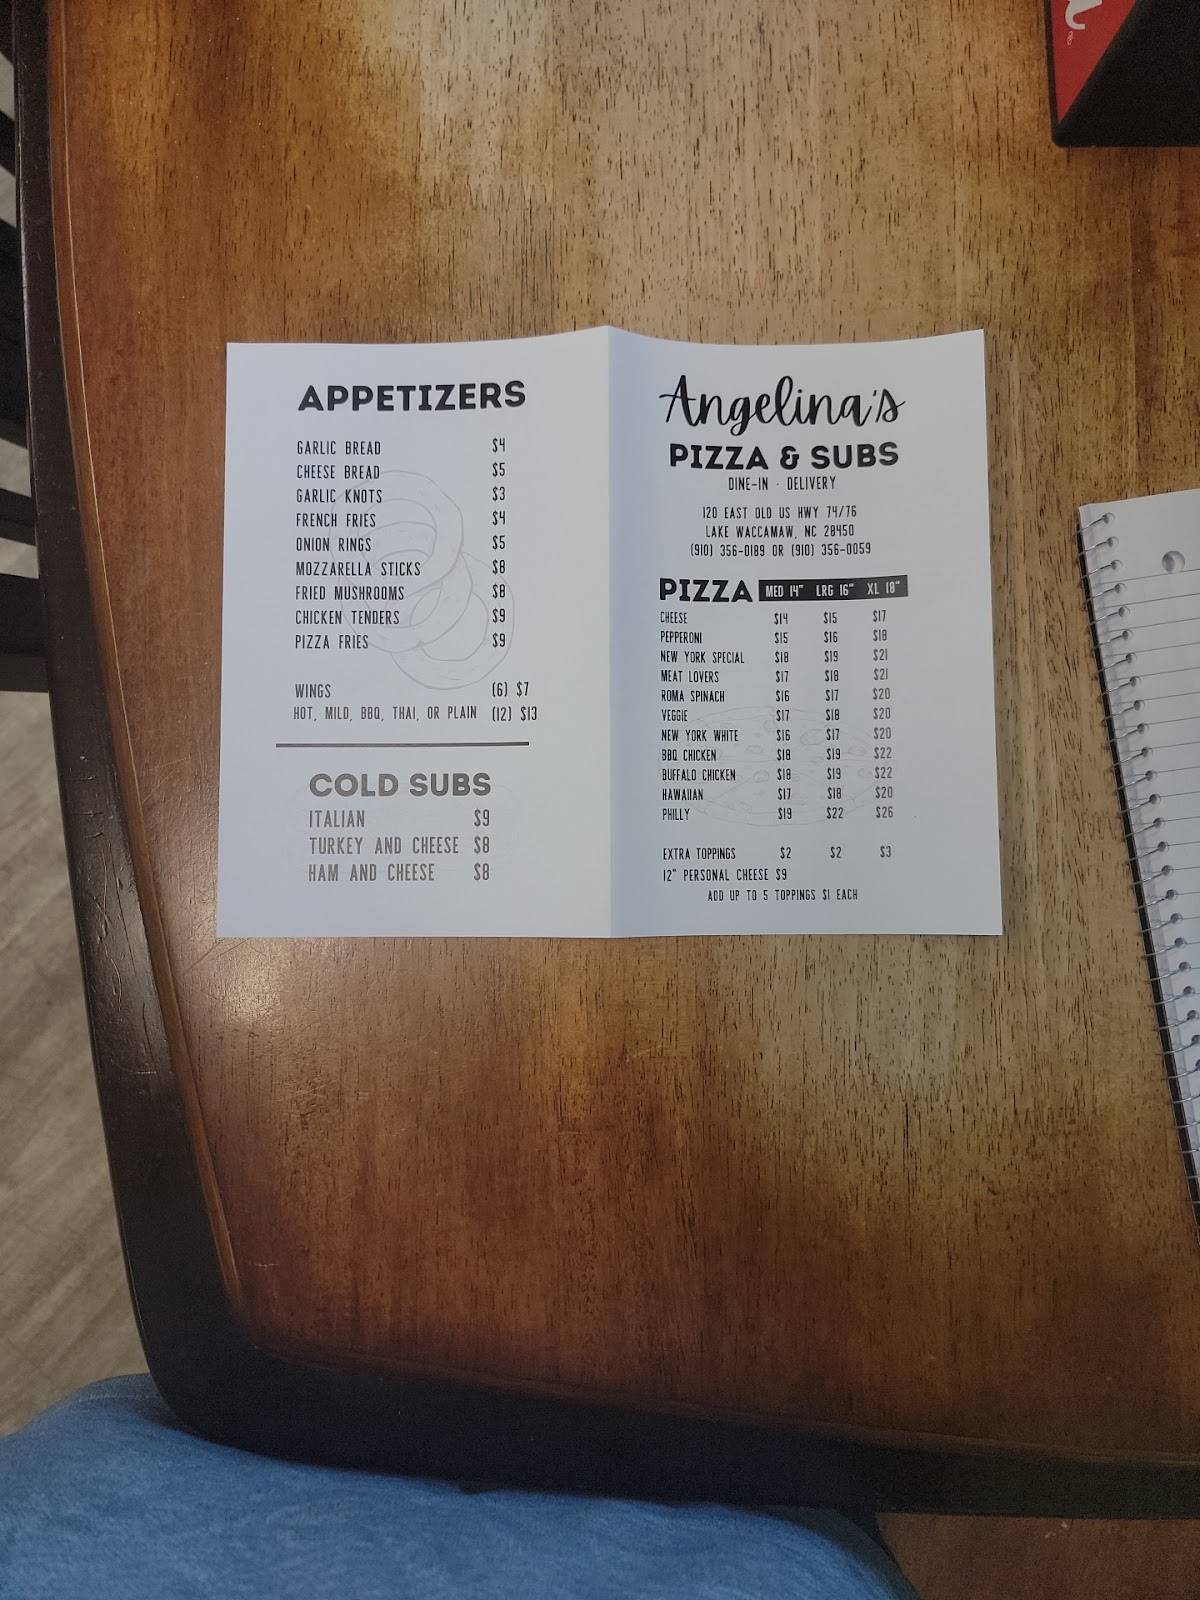 APPETIZERS
GARLIC BREAD $4
CHEESE BREAD $5
GARLIC KNOTS $3
FRENCH FRIES $4
ONION RINGS $5
MOZZARELLA STICKS $8
FRIED MUSHROOMS $8
CHICKEN TENDERS $9
PIZZA FRIES $9
WINGS (6) $7
HOT, MILD, BBQ, THAI, OR PLAIN (12) $13
COLD SUBS
ITALIAN $9
TURKEY AND CHEESE $8
HAM AND CHEESE $8
Angelina's
PIZZA & SUBS
DINE-IN · DELIVERY
120 EAST OLD US HWY 74/76
LAKE WACCAMAW, NC 28450
(910) 356-0189 OR (910) 356-0059
PIZZA MED 14" LRG 16" XL 18"
CHEESE $14 $15 $17
PEPPERONI $15 $16 $18
NEW YORK SPECIAL $18 $19 $21
MEAT LOVERS $17 $18 $21
ROMA SPINACH $16 $17 $20
VEGGIE $17 $18 $20
NEW YORK WHITE $16 $17 $20
BBQ CHICKEN $18 $19 $22
BUFFALO CHICKEN $18 $19 $22
HAWAIIAN $17 $18 $20
PHILLY $19 $22 $26
EXTRA TOPPINGS $2 $2 $3
12" PERSONAL CHEESE $9
ADD UP TO 5 TOPPINGS $1 EACH